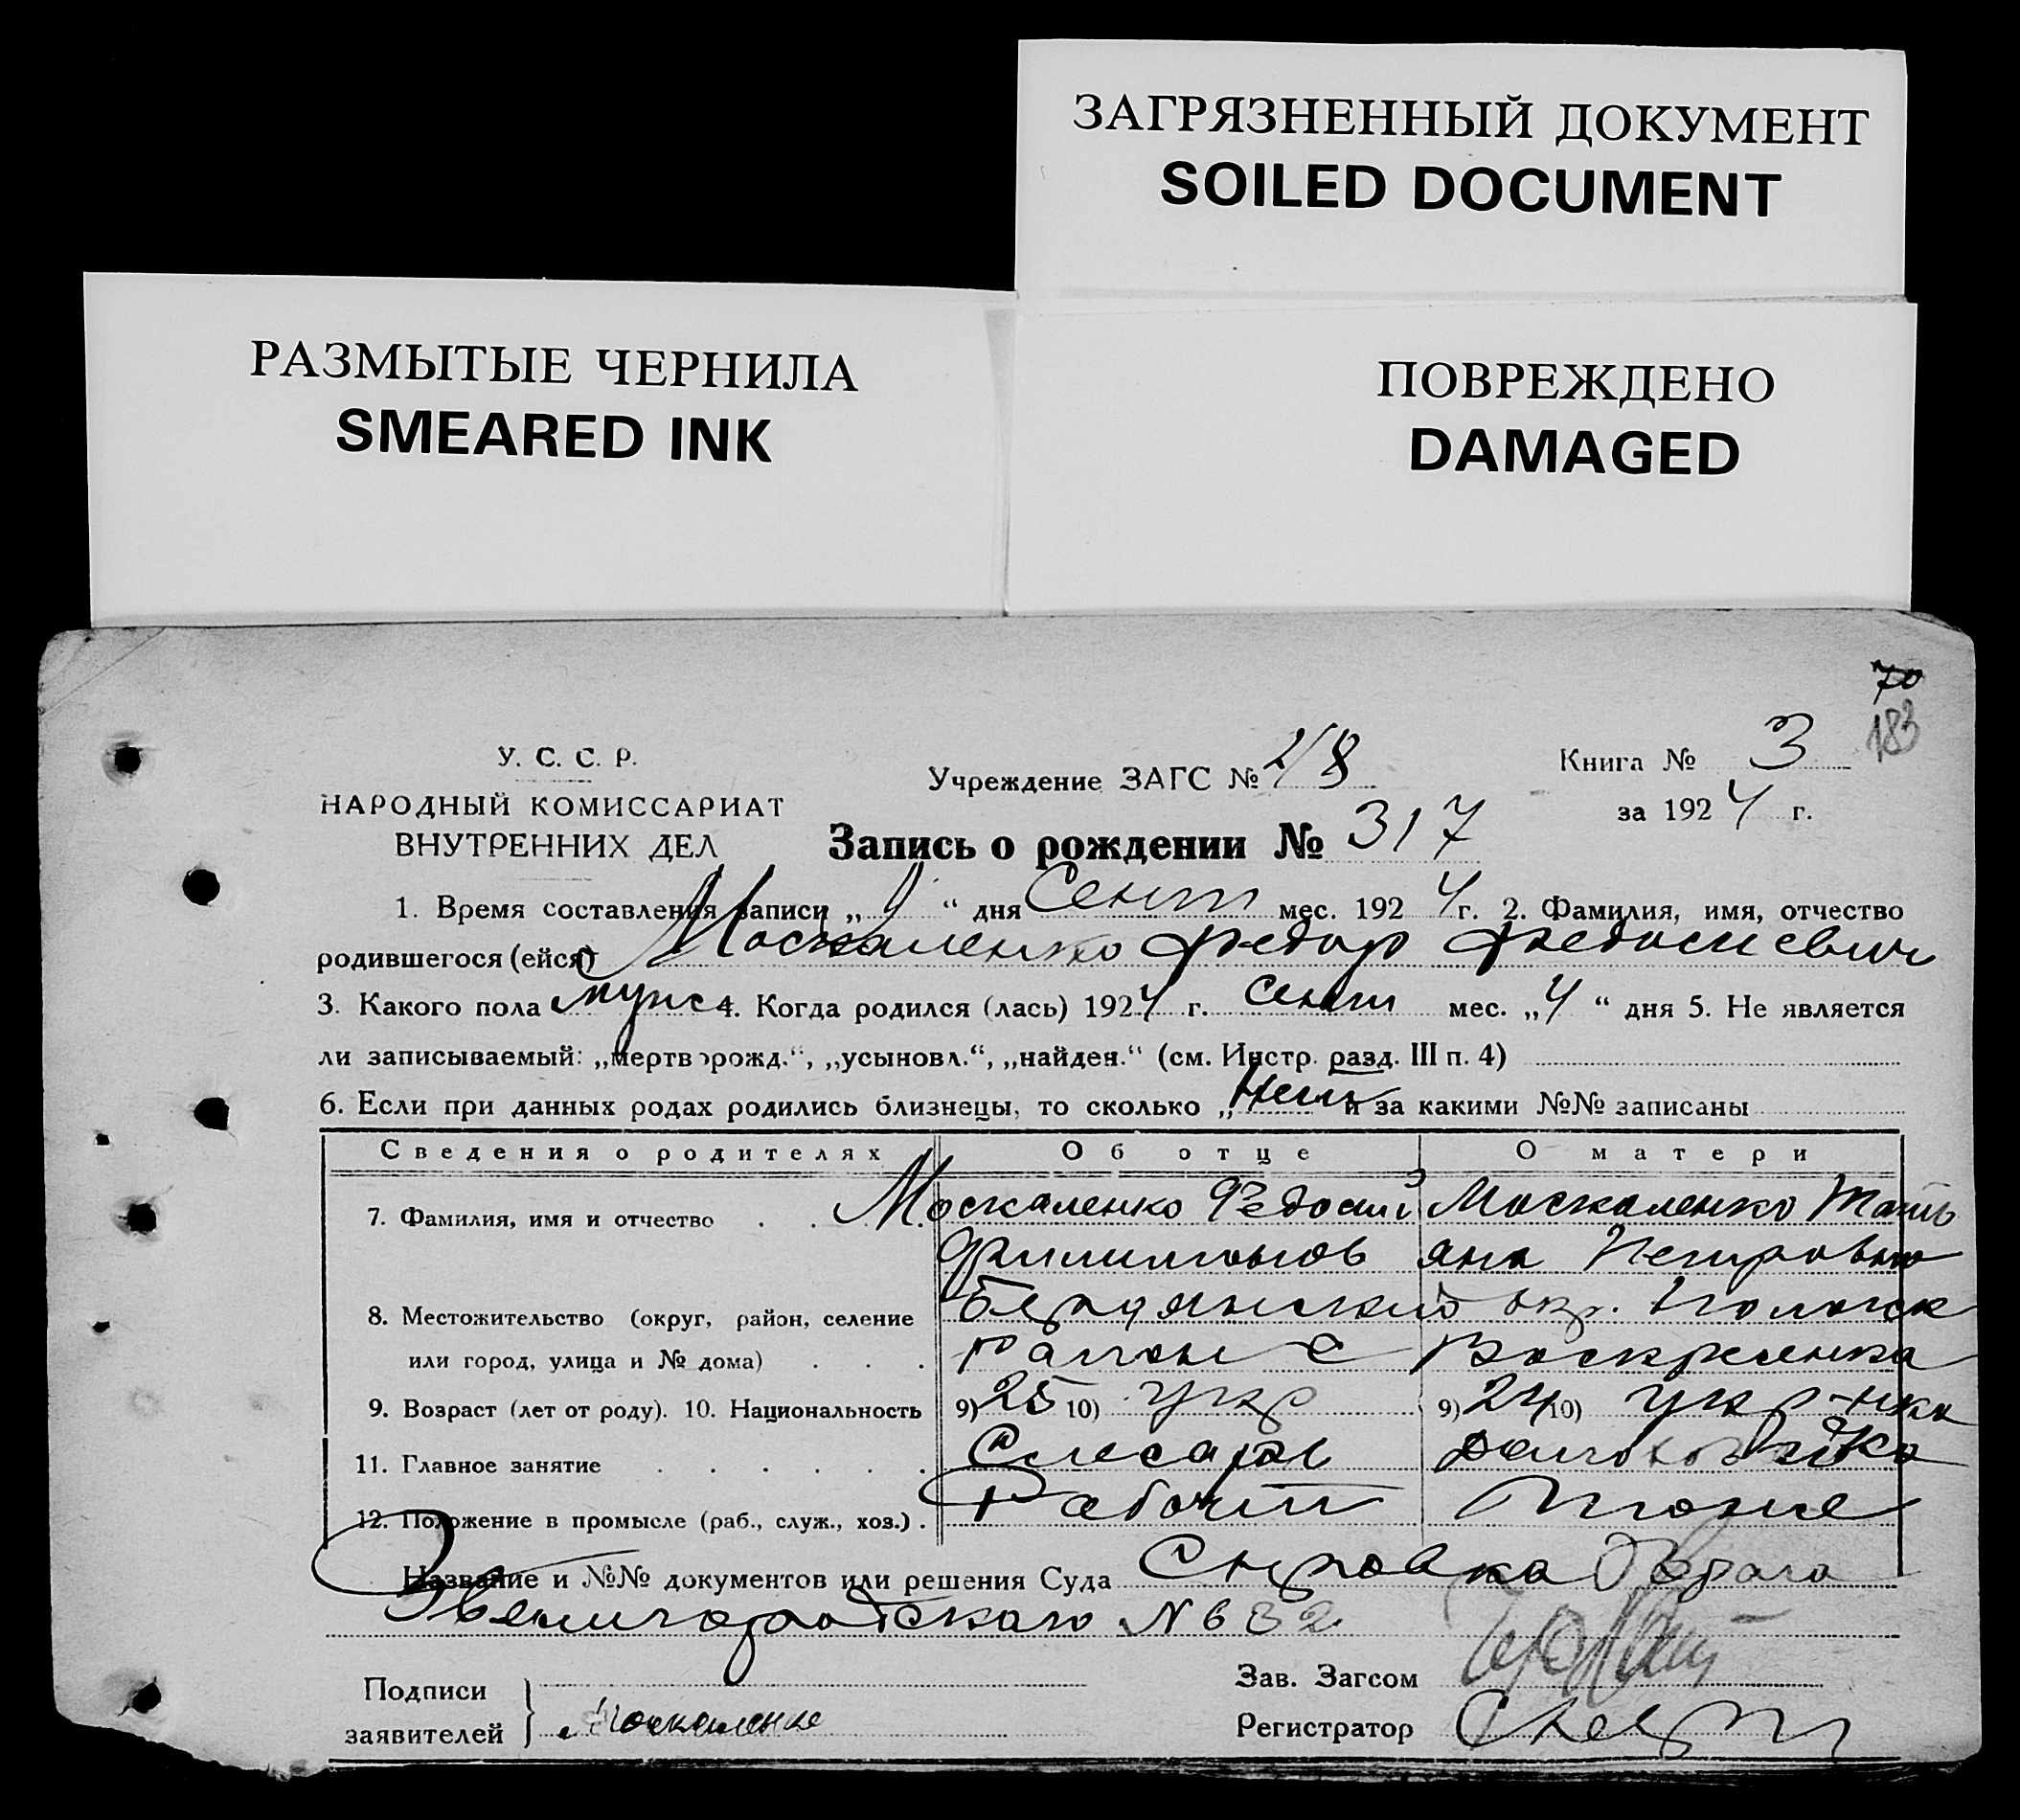 ЗАГРЯЗНЕННЫЙ ДОКУМЕНТ
SOILED DOCUMENT
РАЗМЫТЫЕ ЧЕРНИЛА
SMEARED INK
ПОВРЕЖДЕНО
DAMAGED
70
183
У. С. С. Р.
НАРОДНЫЙ КОМИССАРИАТ
ВНУТРЕННИХ ДЕЛ
Учреждение ЗАГС №
Книга № 3
за 1924 г.
Запись о рождении № 317
1. Время составления записи „ “ дня Сент мес. 1924 г. 2. Фамилия, имя, отчество
родившегося (ейся) Москаленко Федор Федосиевич
3. Какого пола мужс 4. Когда родился (лась) 1924 г. сент мес. „4“ дня 5. Не является
ли записываемый: „мертворожд.“, „усыновл.“, „найден.“ (см. Инстр. разд. III п. 4)
6. Если при данных родах родились близнецы, то сколько „ и за какими №№ записаны
Сведения о родителях Об отце О матери
7. Фамилия, имя и отчество . . Москаленко Федосий Москаленко Тать
Филимонов яна Петровна
8. Местожительство (округ, район, селение Бердянский окр. Пологск
или город, улица и № дома) . . . район с Воскресенка
9. Возраст (лет от роду). 10. Национальность 9) 25 10) укр 9) 24 10) укр-нка
11. Главное занятие . . . . . . Слесарь домохозяйка
12. Положение в промысле (раб., служ., хоз.) . Рабочий
Название и №№ документов или решения Суда Справка Врача
N 632
Подписи
заявителей } Москаленко
Зав. Загсом
Регистратор